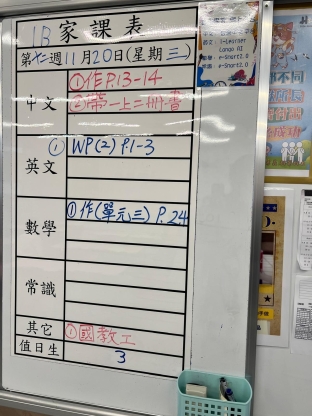 1B 家課表
第十二週11月20日(星期三)
中文
①作P.13-14
②帶一上二冊書
英文
① WP(2) P.1-3
數學
①作(單元三) P.24
常識
其它
①國教工
值日生
3
i-Learner
e-Smart2.0
e-Smart2.0
不同
成功